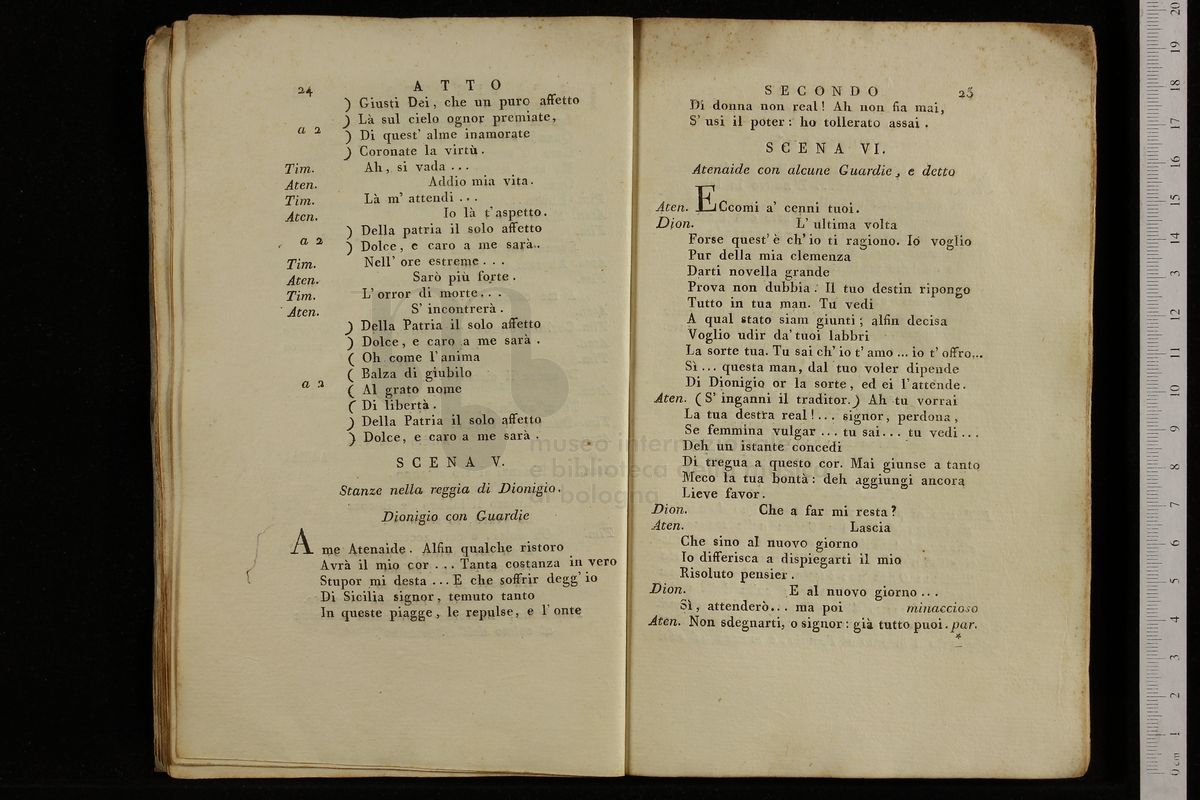 24
A T T O
) Giusti Dei, che un puro affetto
) Là sul cielo ognor premiate,
a 2
) Di quest' alme inamorate
) Coronate la virtù.
Tim. Ah, si vada ...
Aten. Addio mia vita.
Tim. Là m' attendi ...
Aten. Io là t'aspetto.
) Della patria il solo affetto
a 2
) Dolce, e caro a me sarà..
Tim. Nell' ore estreme ...
Aten. Sarò più forte.
Tim. L' orror di morte...
Aten. S' incontrerà.
) Della Patria il solo affetto
) Dolce, e caro a me sarà.
( Oh come l'anima
( Balza di giubilo
a 2
( Al grato nome
( Di libertà.
) Della Patria il solo affetto
) Dolce, e caro a me sarà.
S C E N A V.
Stanze nella reggia di Dionigio.
Dionigio con Guardie
A me Atenaide. Alfin qualche ristoro
Avrà il mio cor ... Tanta costanza in vero
Stupor mi desta ... E che soffrir degg' io
Di Sicilia signor, temuto tanto
In queste piagge, le repulse, e l' onte
S E C O N D O
25
Di donna non real! Ah non fia mai,
S' usi il poter: ho tollerato assai.
S C E N A VI.
Atenaide con alcune Guardie, e detto
Aten. ECcomi a' cenni tuoi.
Dion. L' ultima volta
Forse quest' è ch' io ti ragiono. Io voglio
Pur della mia clemenza
Darti novella grande
Prova non dubbia. Il tuo destin ripongo
Tutto in tua man. Tu vedi
A qual stato siam giunti; alfin decisa
Voglio udir da' tuoi labbri
La sorte tua. Tu sai ch' io t' amo ... io t' offro...
Sì ... questa man, dal tuo voler dipende
Di Dionigio or la sorte, ed ei l'attende.
Aten. (S' inganni il traditor.) Ah tu vorrai
La tua destra real! ... signor, perdona,
Se femmina vulgar ... tu sai... tu vedi ...
Deh un istante concedi
Di tregua a questo cor. Mai giunse a tanto
Meco la tua bontà: deh aggiungi ancora
Lieve favor.
Dion. Che a far mi resta?
Aten. Lascia
Che sino al nuovo giorno
Io differisca a dispiegarti il mio
Risoluto pensier.
Dion. E al nuovo giorno ...
Sì, attenderò... ma poi minaccioso
Aten. Non sdegnarti, o signor: già tutto puoi. par.
*
museo internazionale
e biblioteca della musica
di bologna
0 cm 1 2 3 4 5 6 7 8 9 10 11 12 13 14 15 16 17 18 19 20